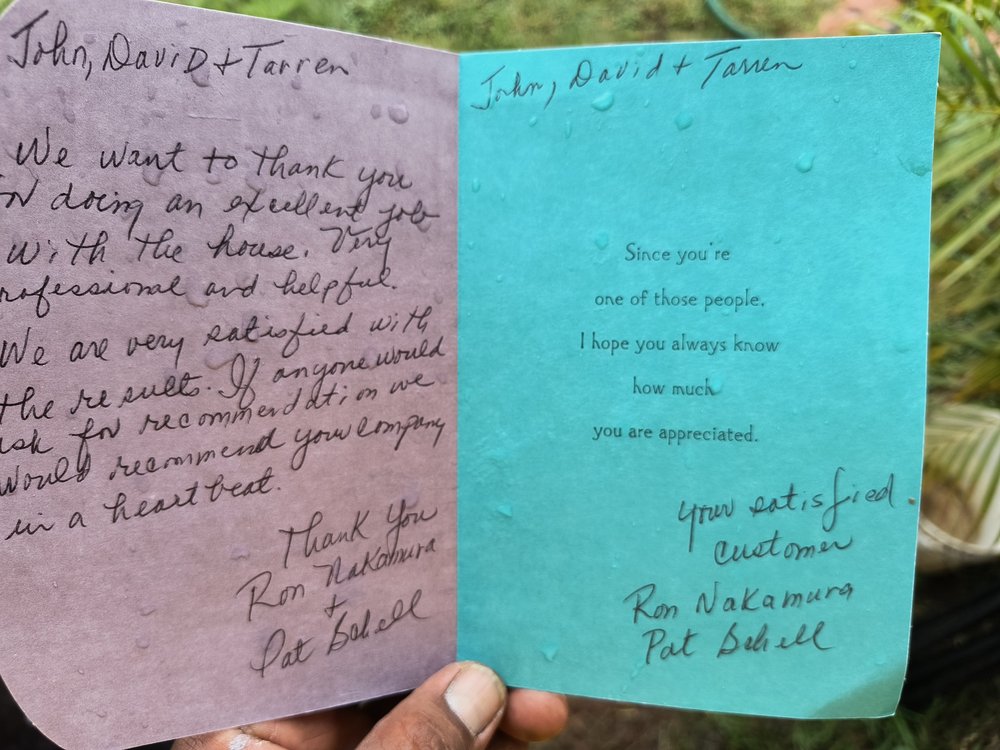 John, David + Tarren
We want to thank you
for doing an excellent job
with the house. Very
rofessional and helpful.
We are very satisfied with
the results. If anyone would
ask for recommendation we
would recommend your company
in a heartbeat.
Thank You
Ron Nakamura
+
Pat Schell
John, David + Tarren
Since you're
one of those people,
I hope you always know
how much
you are appreciated.
your satisfied
customer
Ron Nakamura
Pat Schell